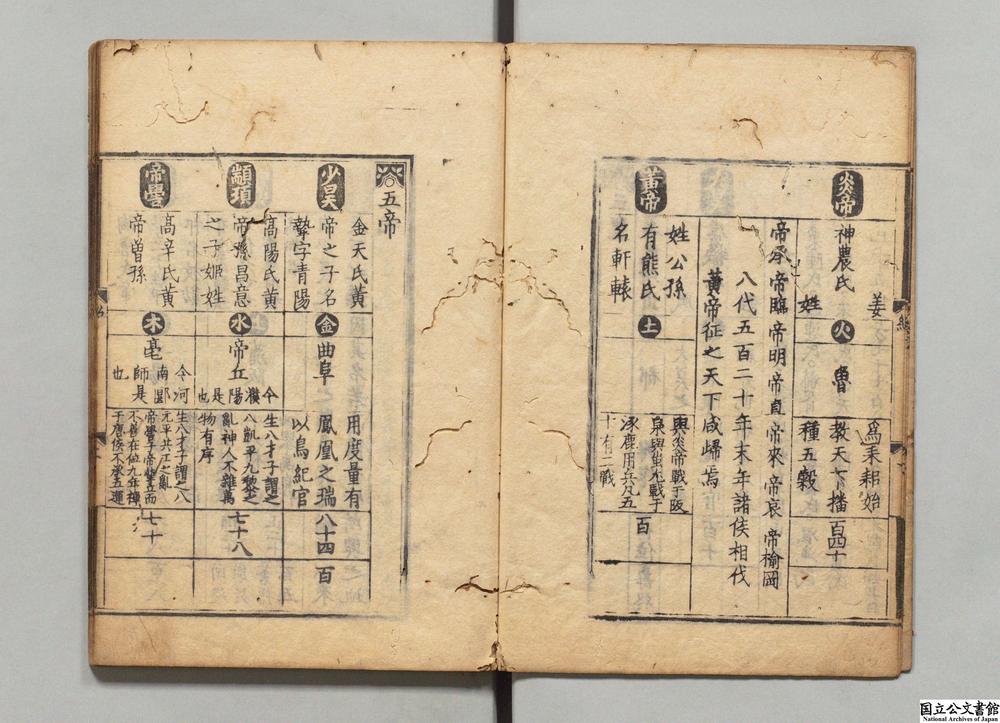 炎帝
神農氏
姜
姓
火
魯
爲耒耜始
教天下播
種五穀
百四十
帝承 帝臨 帝明 帝直 帝來 帝哀 帝榆岡
八代五百二十年末年諸侯相伐
黃帝征之天下咸歸焉
黃帝
姓公孫
有熊氏
名軒轅
土
與炎帝戰于阪
泉與蚩尤戰于
涿鹿用兵凡五
十有二戰
百
五帝
少昊
金天氏黃
帝之子名
摯字青陽
金
曲阜
用度量有
鳳凰之瑞
以鳥紀官
八十四
百
顓頊
高陽氏黃
帝孫昌意
之子姬姓
水
帝丘
今濮
陽是
也
生八才子謂之
八凱平九黎之
亂神人不雜萬
物有序
七十八
帝嚳
高辛氏黃
帝曾孫
木
亳
今河
南郾
師是
也
生八才子謂之八
元平共工之亂
帝嚳子帝摯立而
不善在位九年禪
于唐侯不承五運
七十
国立公文書館
National Archives of Japan